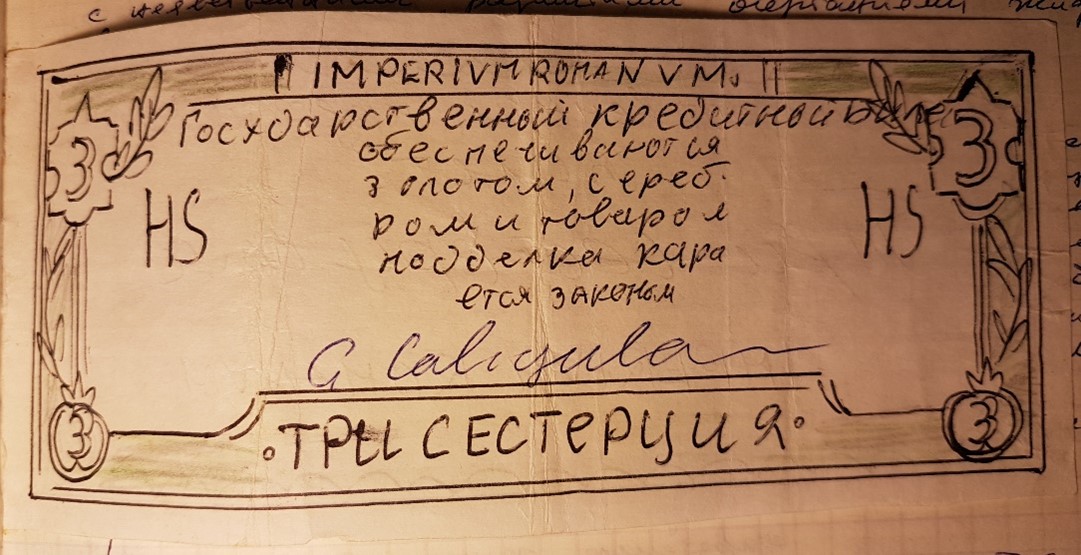 IMPERIVM ROMANVM.
3 3
Госхдарственный кредитный билет
обеспечиваются
золотом, сереб-
ром и товаром
подделка кара
ется законом
HS HS
G Caligula
3 3
•ТРИ СЕСТЕРЦИЯ•